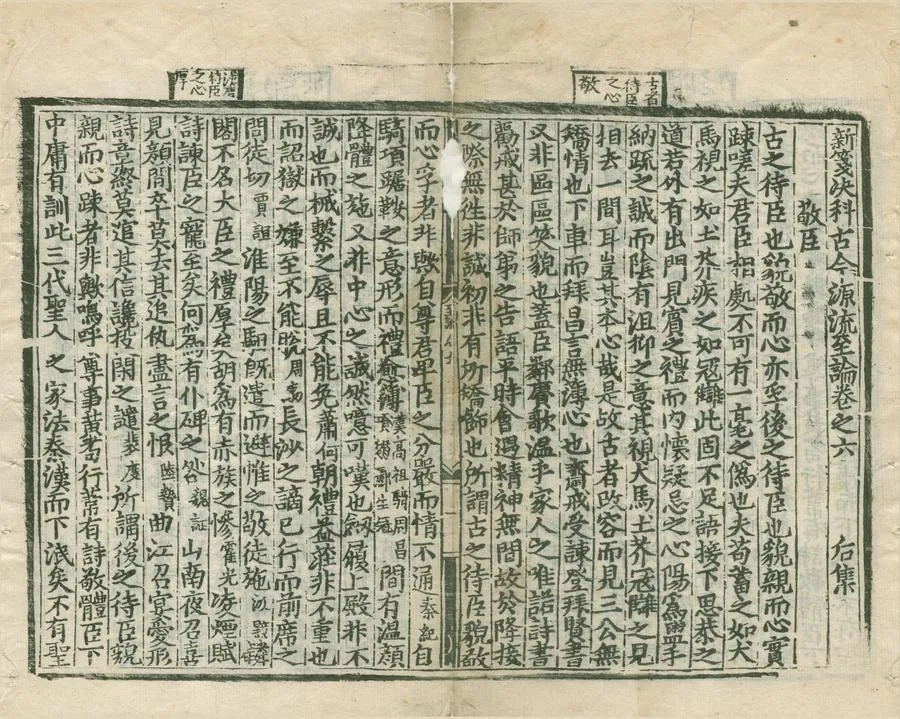 古者
待臣
之心
敬
新箋決科古今源流至論卷之六 后集
敬臣
古之待臣也貌敬而心亦至後之待臣也貌親而心實
踈嗟夫君臣相處不可有一毫之僞也夫苟蓄之如犬
馬視之如土芥疾之如冦讎此固不足語接下思恭之
道若外有出門見賓之禮而内懷疑忌之心陽爲盥手
納疏之誠而陰有沮抑之意其視犬馬土芥冦讎之見
相去一間耳豈其本心哉是故古者改容而見三公無
矯情也下車而拜昌言無薄心也齋戒受諫登拜賢書
又非區區笑貌也蓋臣鄰賡歌温乎家人之唯諾詩書
勸戒甚於師弟之告語平時會遇精神無間故於降接
之際無徃非誠初非有所矯飾也所謂古之待臣貌敬
待臣
之心
厚
而心孚者非歟自尊君卑臣之分嚴而情不通秦紀自
騎項踞鞍之意形而禮愈薄漢高祖騎周昌間有温顔
降體之施又非中心之誠然噫可嘆也劔履上殿非不
誠也而械繫之辱且不能免蕭何朝禮益莊非不重也
而詔獄之嫌至不能脫周勃長沙之謫已行而前席之
問徒切賈誼淮陽之駒既遣而避惟之敬徒施汲黯麟
閣不名大臣之禮厚矣胡爲有赤族之慘霍光凌煙賦
詩諫臣之寵至矣何為有仆碑之咎魏証山南夜召喜
見顔間卒莫去其追仇盡言之恨陸贄曲江召宫愛形
詩章縶莫追其信讒投閑之譴裴度所謂後之待臣貌
親而心踈者非歟嗚呼尊事黄耇行葦有詩敬體臣下
中庸有訓此三代聖人之家法秦漢而下泯矣不有聖